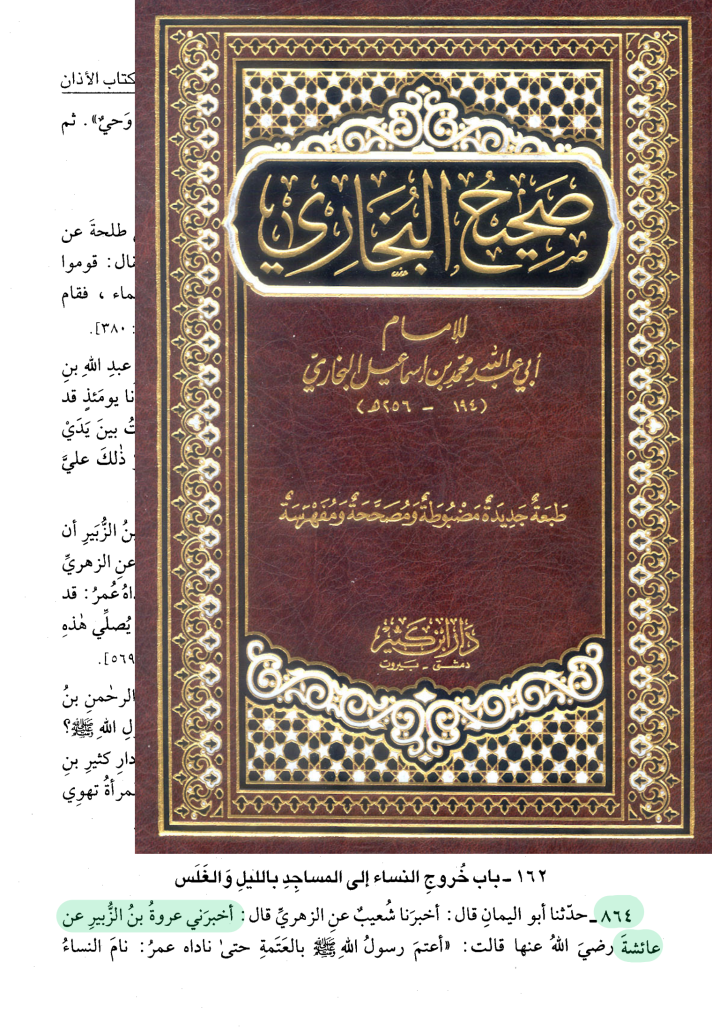 كتاب الأذان
وَحيٌ». ثم
طلحةَ عن
قال: قوموا
فقام
: ٣٨٠].
عبدِ اللهِ بنِ
يومَئذٍ قد
بينَ يَدَيْ
ذٰلكَ عليَّ
بنُ الزُّبَيرِ أن
عنِ الزهريِّ
عُمرُ: قد
يُصلِّي هٰذهِ
٥٦٩].
الرحمٰنِ بنُ
اللهِ ﷺ؟
دارِ كثيرِ بنِ
تهوِي
صَحِيحُ البُخَارِي
للإمام
أبي عبد الله محمد بن إسماعيل البخاريّ
(١٩٤ - ٢٥٦هـ)
طَبعَةٌ جَدِيدَةٌ مَضْبُوطَةٌ وَمُصَحَّحَةٌ وَمُفَهْرَسَةٌ
دار ابن كثير
دمشق - بيروت
١٦٢ ـ باب خُروجِ النساء إلى المساجِدِ بالليلِ وَالغَلَس
٨٦٤ ـ حدّثنا أبو اليمانِ قال: أخبرَنا شُعيبٌ عنِ الزهريِّ قال: أخبرَني عروةُ بنُ الزُّبيرِ عن
عائشةَ رضيَ اللهُ عنها قالت: «أعتمَ رسولُ اللهِ ﷺ بالعَتَمةِ حتىٰ ناداه عمرُ: نامَ النساءُ